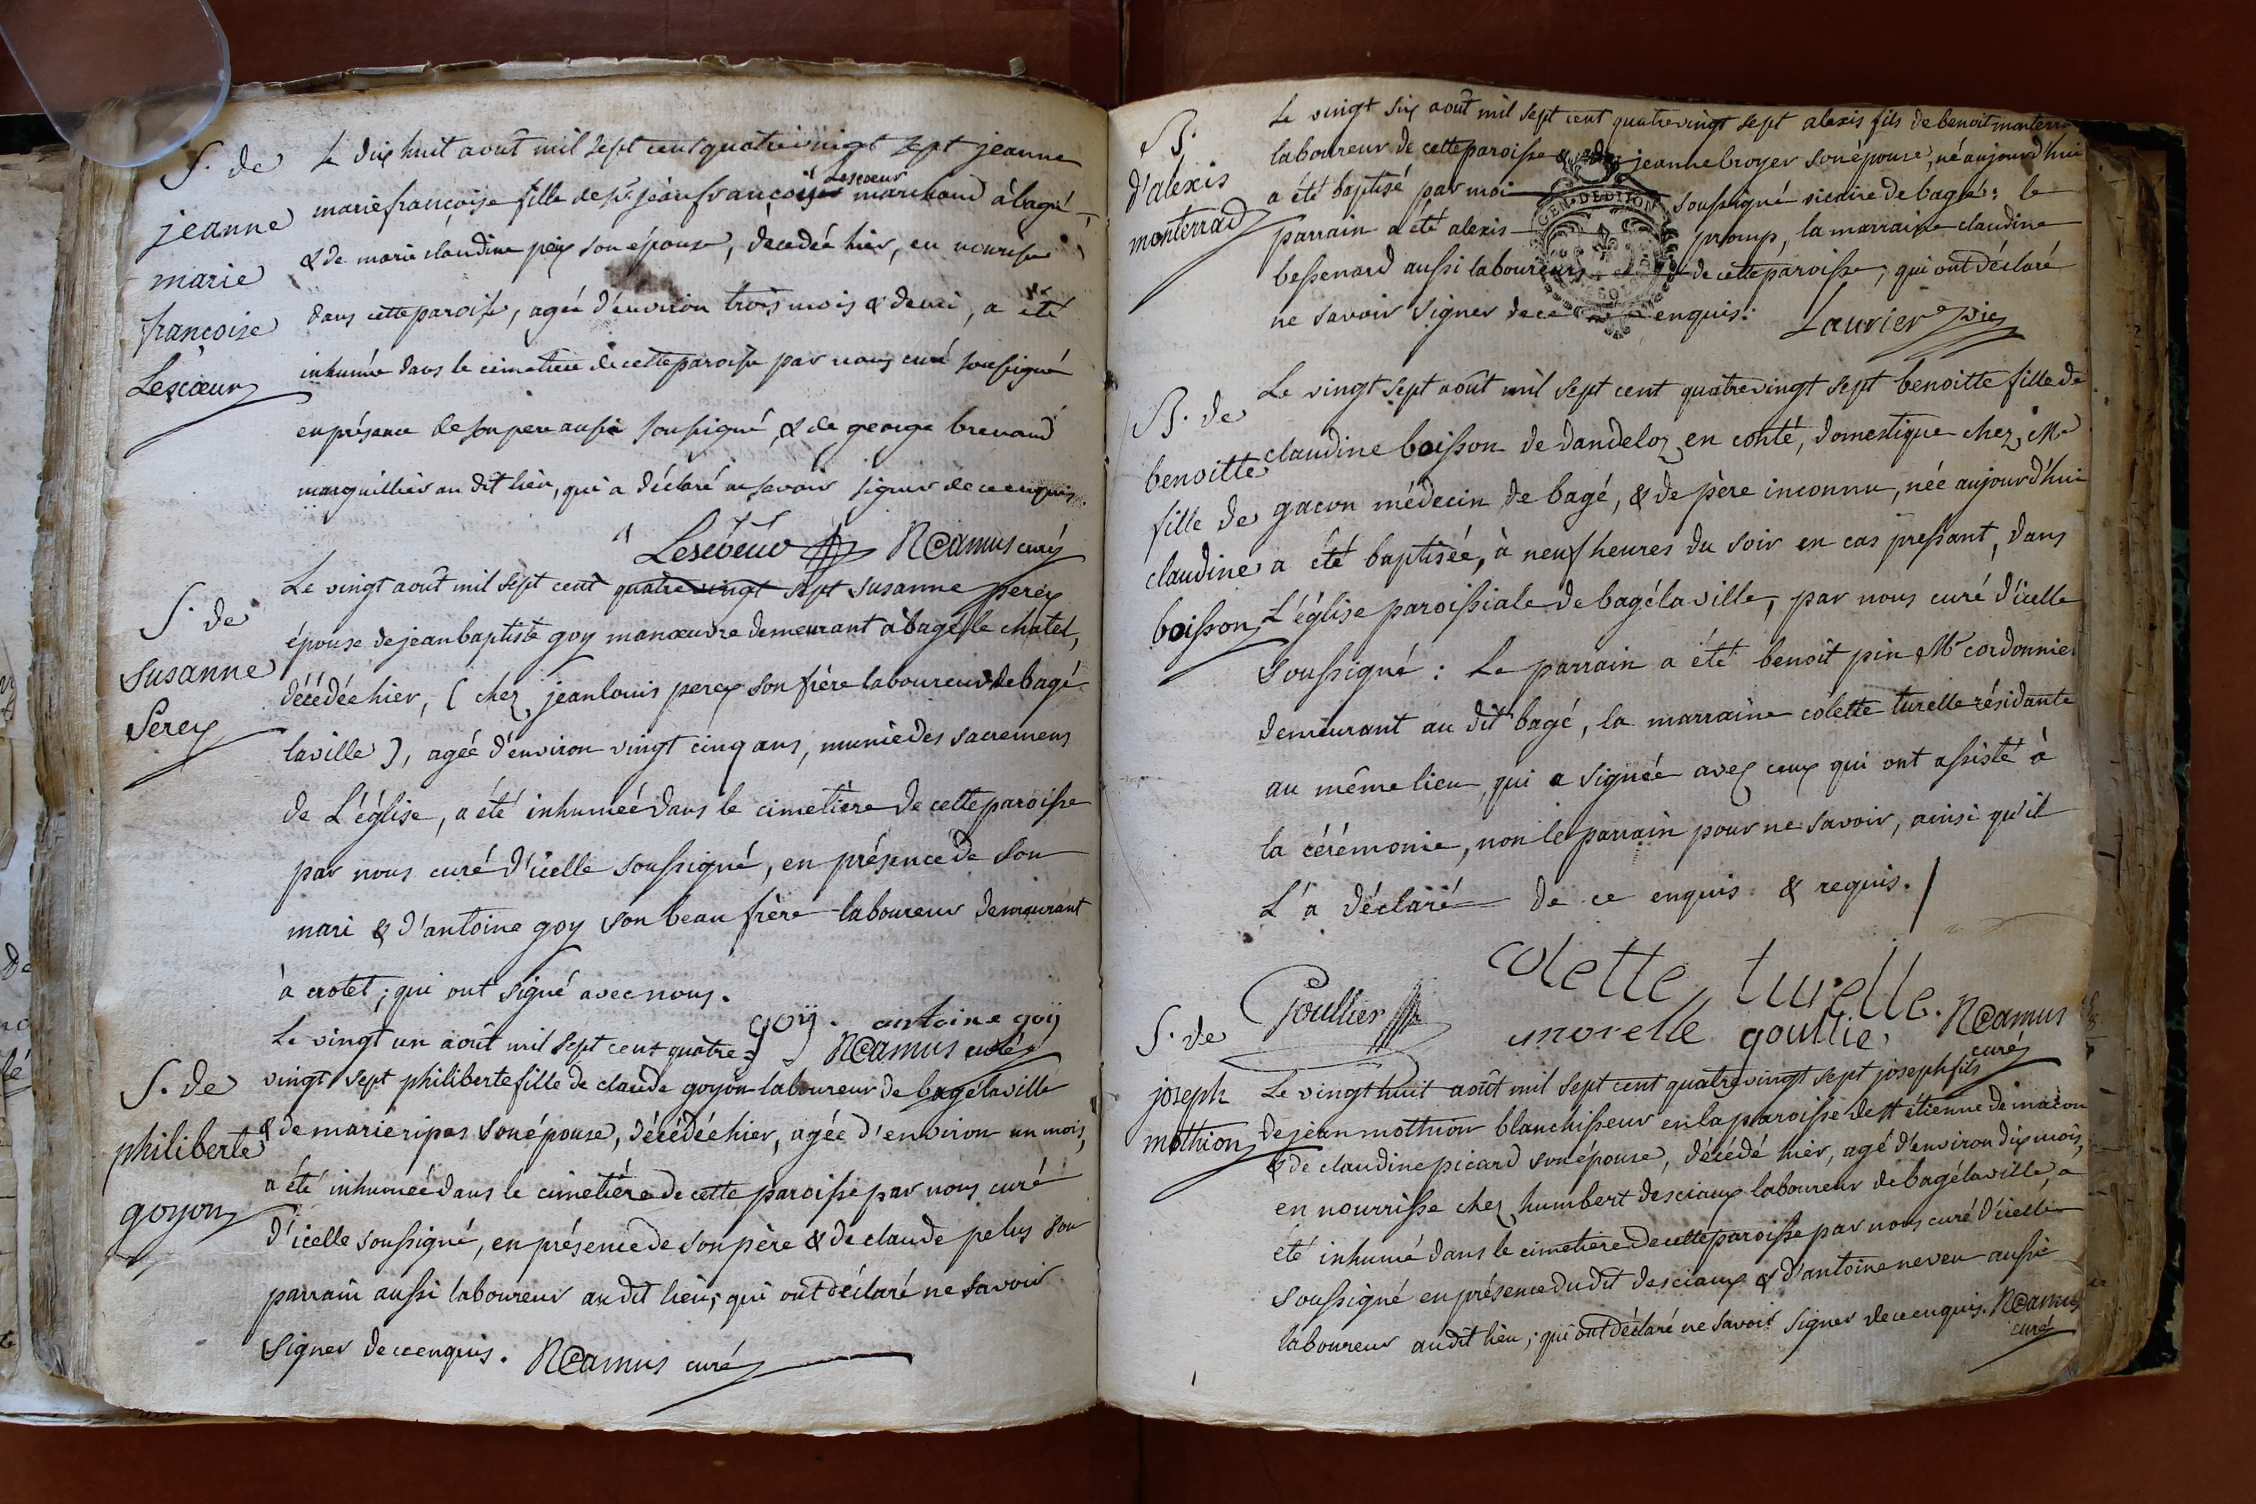 S. de
jeanne
marie
françoise
Lescœur
Le dix huit août mil sept cent quatrevingt sept jeanne
marie françoise fille de sr. jean françois Lescœur marchand à bagé
& de marie claudine peix son épouse, décédée hier, en nourisse
dans cette paroisse, agée d'environ trois mois & demi, a été
inhumée dans le cimetiere de cette paroisse par nous curé soussigné
en présence de son pere aussi soussigné & de george brenaud
marguillier au dit lieu, qui a déclaré ne savoir signer de ce enquis.
Lescœur NCamus curé
S. de
susanne
Perex
Le vingt août mil sept cent quatrevingt sept susanne perex
épouse de jean baptiste goy manœuvre demeurant à bagé le chatel,
décédée hier, (chez jean louis perex son frère laboureur de bagé
la ville), agée d'environ vingt cinq ans, munie des sacremens
de L'église, a été inhumée dans le cimetière de cette paroisse
par nous curé d'icelle soussigné, en présence de son
mari & d'antoine goy son beau frère laboureur demeurant
à crotet; qui ont signé avec nous.
goÿ. antoine goÿ
NCamus curé
S. de
philiberte
goyon
Le vingt un août mil sept cent quatre=
vingt sept philiberte fille de claude goyon laboureur de bagé la ville
& de marie ripas son épouse, décédée hier, agée d'environ un mois,
a été inhumée dans le cimetière de cette paroisse par nous curé
d'icelle soussigné, en présence de son père & de claude pelus son
parrain aussi laboureur au dit lieu; qui ont déclaré ne savoir
signer de ce enquis. NCamus curé
B.
d'alexis
monterrad
Le vingt six août mil sept cent quatrevingt sept alexis fils de benoit monterrad
laboureur de cette paroisse & de jeanne broyer son épouse, né aujourd'hui
a été baptisé par moi soussigné vicaire de bagé: le
parrain a été alexis promp, la marraine claudine
bessenard aussi laboureurs de cette paroisse, qui ont déclaré
ne savoir signer de ce enquis.
GEN. DE DIJON
Laurier vic
B. de
benoitte
fille de
claudine
boisson
Le vingt sept août mil sept cent quatrevingt sept benoitte fille de
claudine boisson de dandeloz en conté, domestique chez Mr
gacon médecin de bagé, & de père inconnu, née aujourd'hui
a été baptisée, à neuf heures du soir en cas pressant, dans
L'église paroissiale de bagé la ville, par nous curé d'icelle
soussigné: Le parrain a été benoît pin Mr cordonnier
demeurant au dit bagé, la marraine colette turelle résidante
au même lieu, qui a signée avec ceux qui ont assisté à
la cérémonie, non le parrain pour ne savoir, ainsi qu'il
L'a déclaré de ce enquis & requis.
colette turelle.
Goullier morelle goullier NCamus
curé
S. de
joseph
mothion
Le vingt huit août mil sept cent quatrevingt sept joseph fils
de jean mothion blanchisseur en la paroisse de st étienne de macon
& de claudine picard son épouse, décédé hier, agé d'environ dix mois,
en nourrisse chez humbert desciaux laboureur de bagé la ville, a
été inhumé dans le cimetiere de cette paroisse par nous curé d'icelle
soussigné en présence du dit desciaux & d'antoine neveu aussi
laboureur au dit lieu; qui ont déclaré ne savoir signer de ce enquis. NCamus
curé